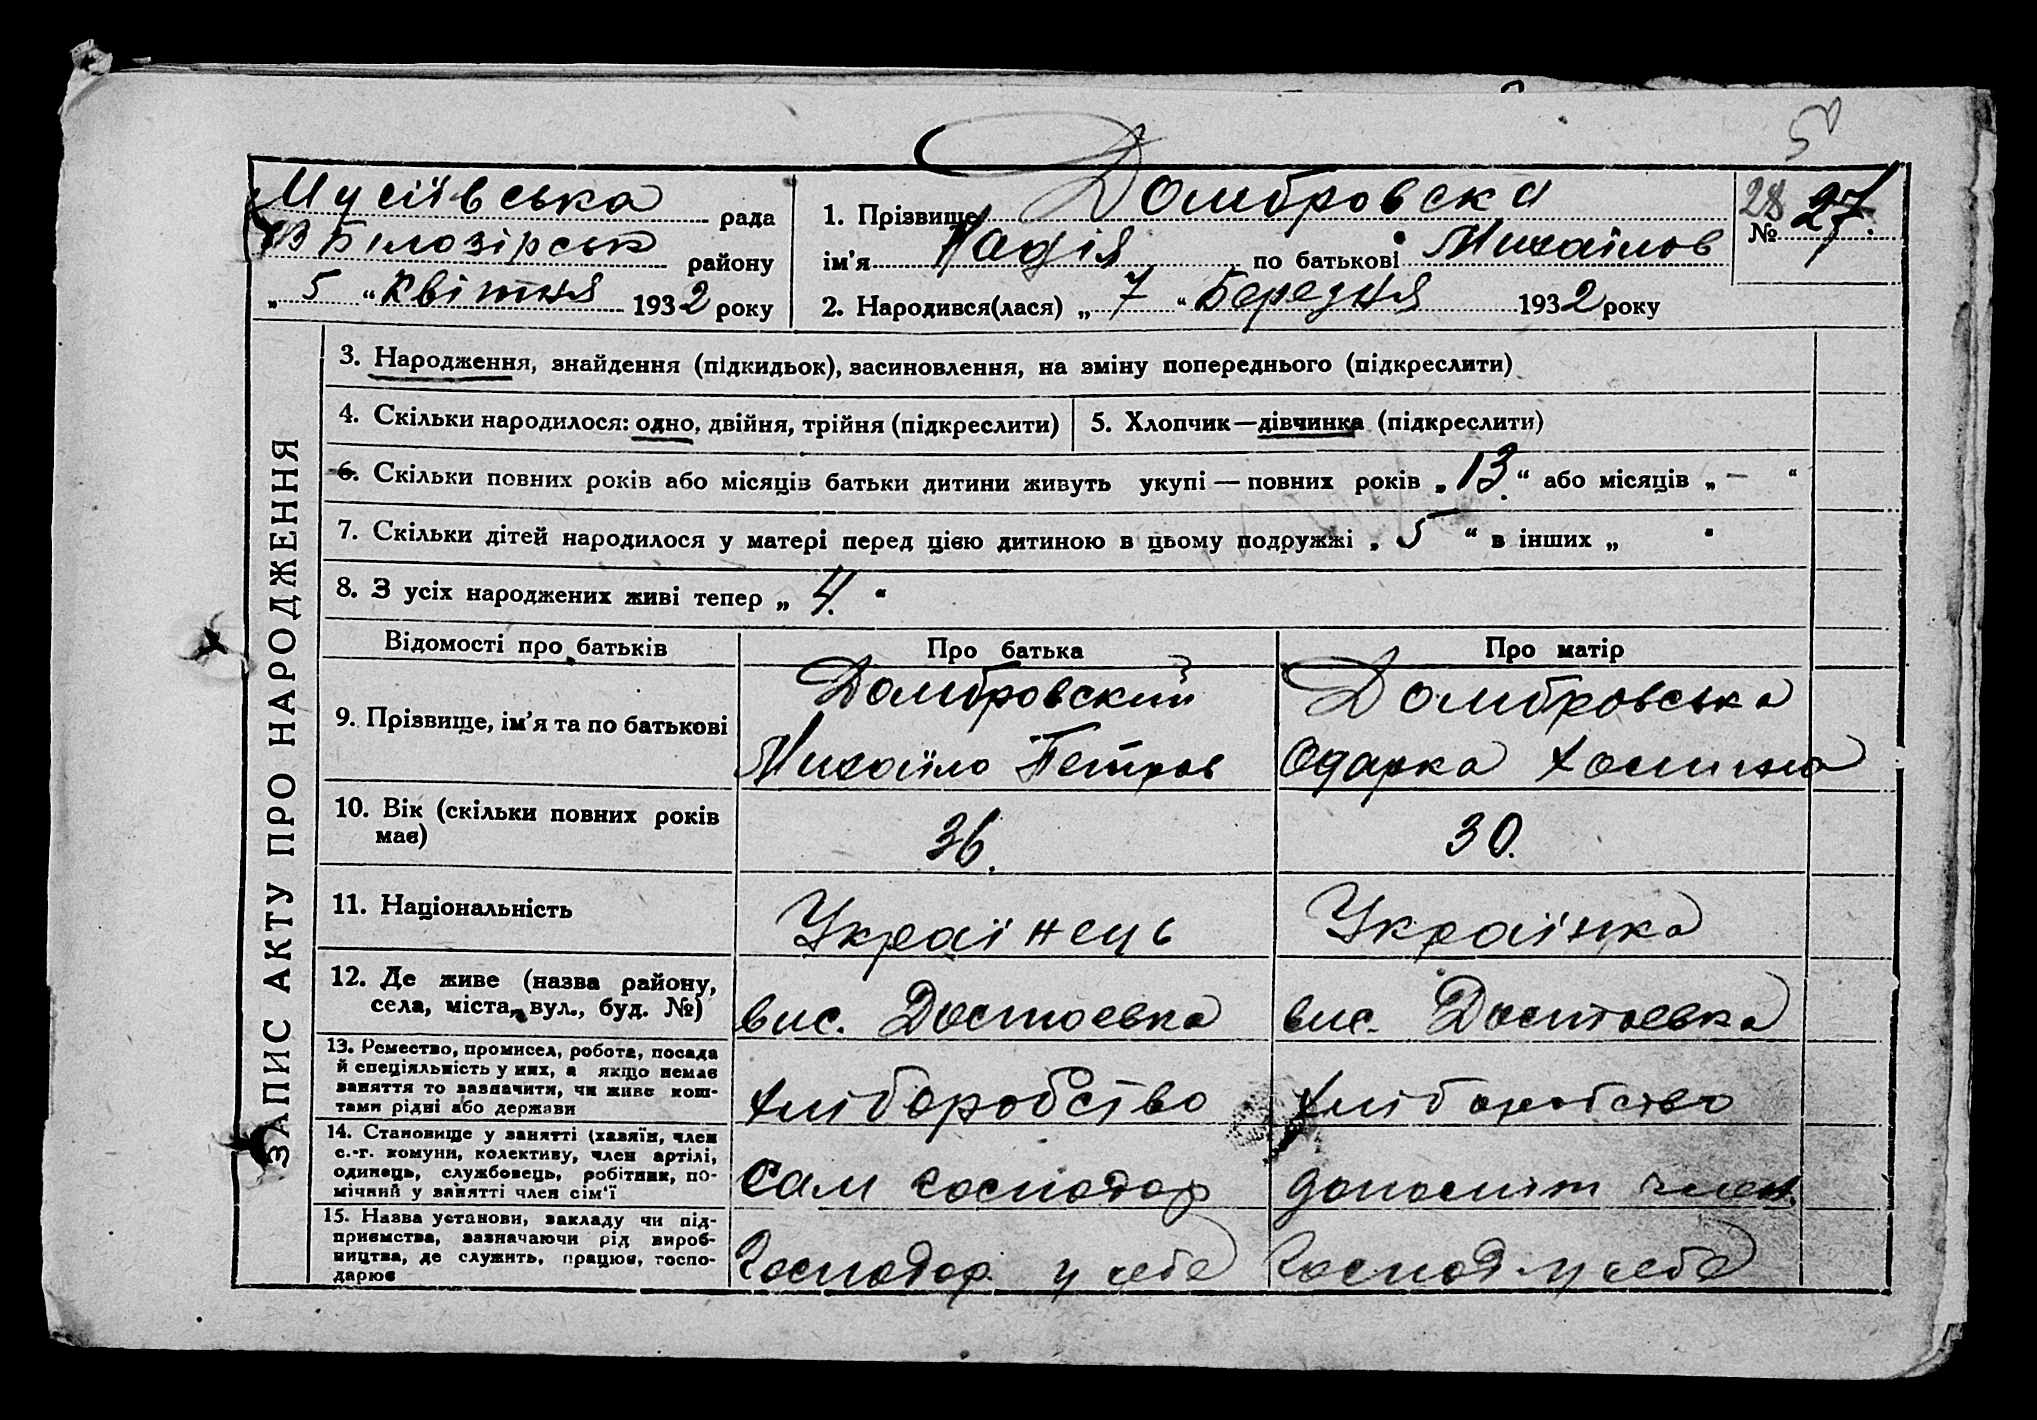 5
Мусіївська рада
В Білозірськ району
„ 5 “ Квітня 1932 року
1. Прізвище Домбровска
ім’я Надія по батькові Михаілов
2. Народився(лася) „ 7 “ Березня 1932 року
28
№ 27.
ЗАПИС АКТУ ПРО НАРОДЖЕННЯ
3. Народження, знайдення (підкидьок), засиновлення, на зміну попереднього (підкреслити)
4. Скільки народилося: одно, двійня, трійня (підкреслити)
5. Хлопчик—дівчинка (підкреслити)
6. Скільки повних років або місяців батьки дитини живуть укупі — повних років „ 13. “ або місяців „ — “
7. Скільки дітей народилося у матері перед цією дитиною в цьому подружжі „ 5 “ в інших „ “
8. З усіх народжених живі тепер „ 4. “
Відомості про батьків
Про батька
Про матір
9. Прізвище, ім’я та по батькові
Домбровский
Михаїло Петров
Домбровська
Одарка
10. Вік (скільки повних років
має)
36.
30.
11. Національність
Украінець
Украінка
12. Де живе (назва району,
села, міста, вул., буд. №)
вис. Достоевка
вис. Достоевка
13. Ремество, промисел, робота, посада
й спеціяльність у них, а якщо немає
заняття то зазначити, чи живе кош-
тами рідні або держави
хліборобство
хліборобство
14. Становище у занятті (хазяїн, член
с.-г. комуни, колективу, член артілі,
одинець, службовець, робітник, по-
мічний у занятті член сім’ї
Сам господар
допоміжн член.
15. Назва установи, закладу чи під-
приємства, зазначаючи рід вироб-
ництва, де служить, працює, госпо-
дарює
Господар у себе
Господ у себе